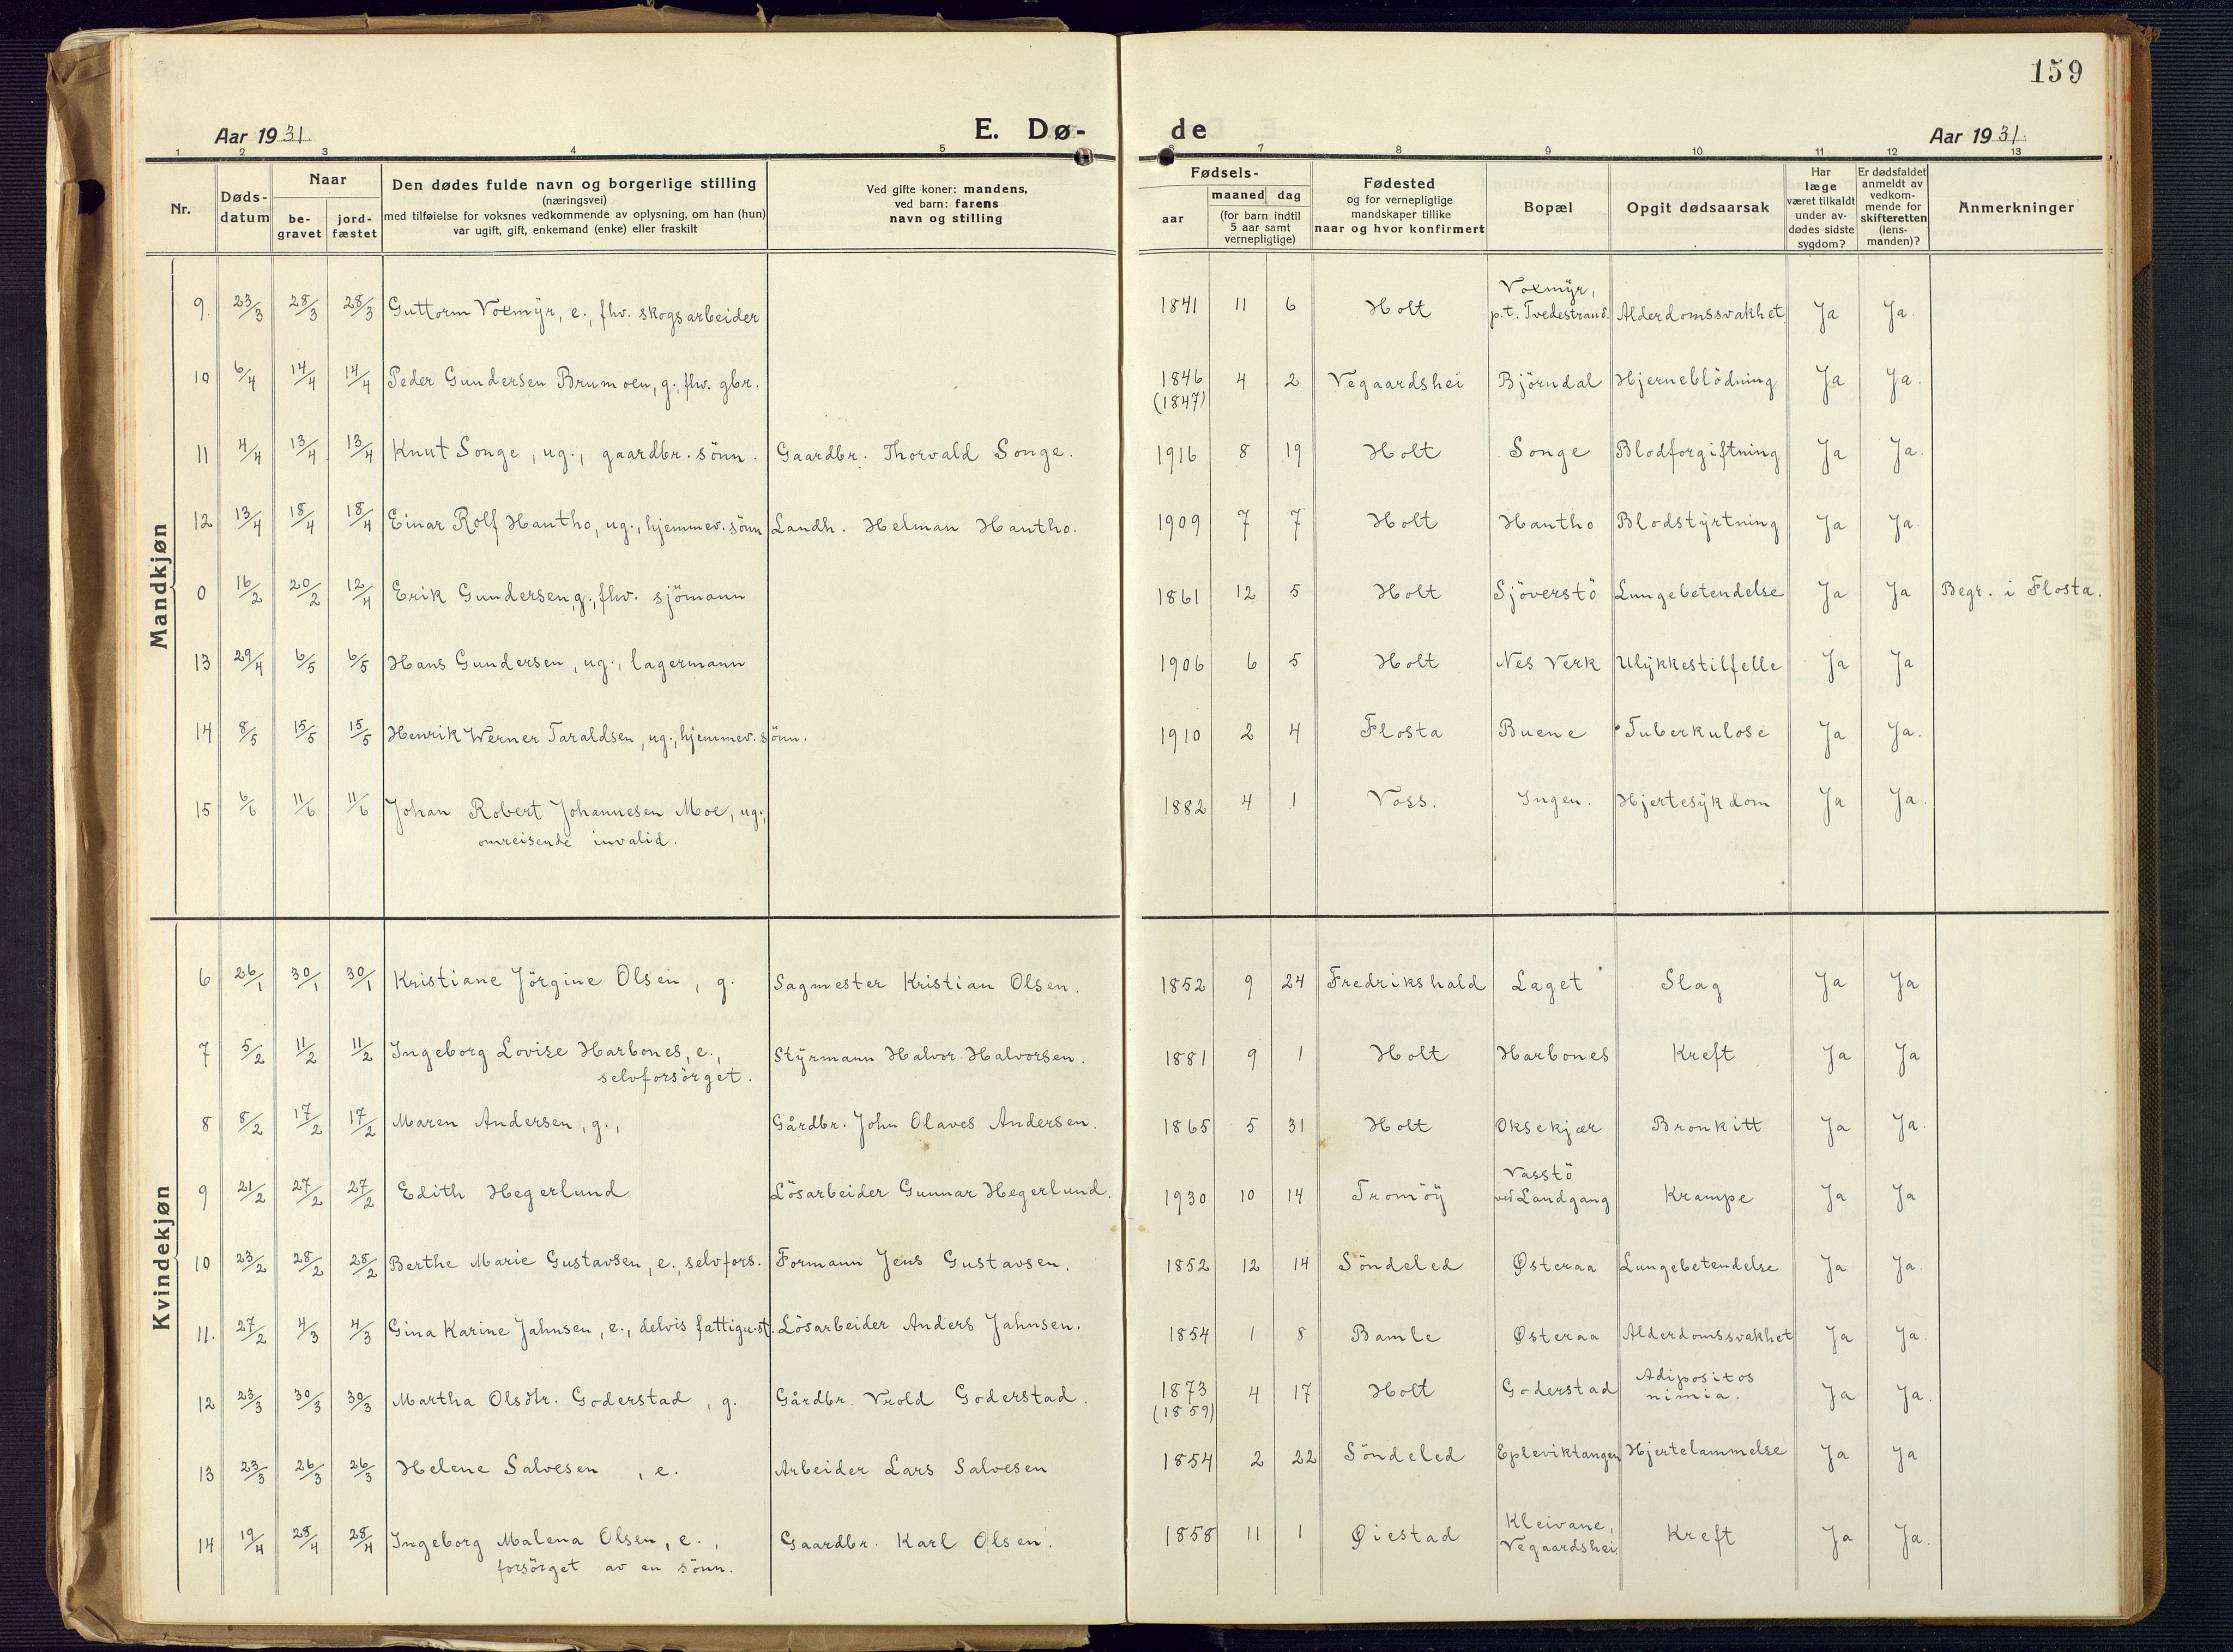 159
Aar 1931.
E. Dø-
de
Aar 1931.
1 2 3 4 5 6 7 8 9 10 11 12 13
Nr.
Døds-
datum
Naar
be-
gravet
jord-
fæstet
Den dødes fulde navn og borgerlige stilling
(næringsvei)
med tilføielse for voksnes vedkommende av oplysning, om han (hun)
var ugift, gift, enkemand (enke) eller fraskilt
Ved gifte koner: mandens,
ved barn: farens
navn og stilling
Fødsels-
aar
maaned
dag
(for barn indtil
5 aar samt
vernepligtige)
Fødested
og for vernepligtige
mandskaper tillike
naar og hvor konfirmert
Bopæl
Opgit dødsaarsak
Har
læge
været tilkaldt
under av-
dødes sidste
sygdom?
Er dødsfaldet
anmeldt av
vedkom-
mende for
skifteretten
(lens-
manden)?
Anmerkninger
Mandkjøn
9. 23/3 28/3 28/3 Guttorm Voxmÿr, e., fhv. skogsarbeider 1841 11 6 Holt Voxmÿr,
p.t. Tvedestrand. Alderdomssvakhet Ja Ja.
10 6/4 14/4 14/4 Peder Gundersen Brumoen, g., fhv. gbr. 1846 4 2 Vegaardshei Björndal Hjerneblödning Ja Ja.
(1847)
11 4/4 13/4 13/4 Knut Songe, ug., gaardbr. sönn. Gaardbr. Thorvald Songe. 1916 8 19 Holt Songe Blodforgiftning Ja Ja.
12 13/4 18/4 18/4 Einar Rolf Hantho, ug., hjemmev. sönn Landh. Helman Hantho. 1909 7 7 Holt Hantho Blodstÿrtning Ja Ja.
0 16/2 20/2 12/4 Erik Gundersen, g., fhv. sjömann 1861 12 5 Holt Sjöverstö Lungebetendelse Ja Ja Begr. i Flosta.
13 29/4 6/5 6/5 Hans Gundersen, ug., lagermann 1906 6 5 Holt Nes Verk Ulÿkkestilfelle Ja Ja
14 8/5 15/5 15/5 Henrik Werner Taraldsen, ug., hjemmev. sönn. 1910 2 4 Flosta Buene Tuberkulose Ja Ja.
15 6/6 11/6 11/6 Johan Robert Johannesen Moe, ug., 1882 4 1 Voss. Ingen. Hjertesÿkdom Ja Ja.
omreisende invalid.
Kvindekjøn
6 26/1 30/1 30/1 Kristiane Jörgine Olsen, g. Sagmester Kristian Olsen. 1852 9 24 Fredrikshald Laget Slag Ja Ja
7 5/2 11/2 11/2 Ingeborg Lovise Harbones, e., Stÿrmann Halvor Halvorsen. 1881 9 1 Holt Harbones Kreft Ja Ja
selvforsörget.
8 8/2 17/2 17/2 Maren Andersen, g., Gårdbr. John Olaves Andersen. 1865 5 31 Holt Oksekjær Bronkitt Ja Ja.
9 21/2 27/2 27/2 Edith Hegerlund Lösarbeider Gunnar Hegerlund. 1930 10 14 Tromöÿ Vasstö
ved Landgang Krampe Ja Ja
10 23/2 28/2 28/2 Berthe Marie Gustavsen, e., selvfors. Formann Jens Gustavsen. 1852 12 14 Söndeled Østeraa Lungebetendelse Ja Ja.
11. 27/2 4/3 4/3 Gina Karine Jahnsen, e., delvis fattigu.st. Lösarbeider Anders Jahnsen. 1854 1 8 Bamle Østeraa Alderdomssvakhet Ja Ja.
12 23/3 30/3 30/3 Martha Olsdtr. Goderstad, g. Gårdbr. Vrold Goderstad. 1873 4 17 Holt Goderstad Adipositos
nimia. Ja Ja.
(1859)
13 23/3 26/3 26/3 Helene Salvesen, e. Arbeider Lars Salvesen 1854 2 22 Söndeled Epleviktangen Hjertelammelse Ja Ja
14 19/4 28/4 28/4 Ingeborg Malena Olsen, e., Gaardbr. Karl Olsen. 1858 11 1 Øiestad Kleivane,
Vegaardshei. Kreft Ja Ja.
forsörget av en sönn.